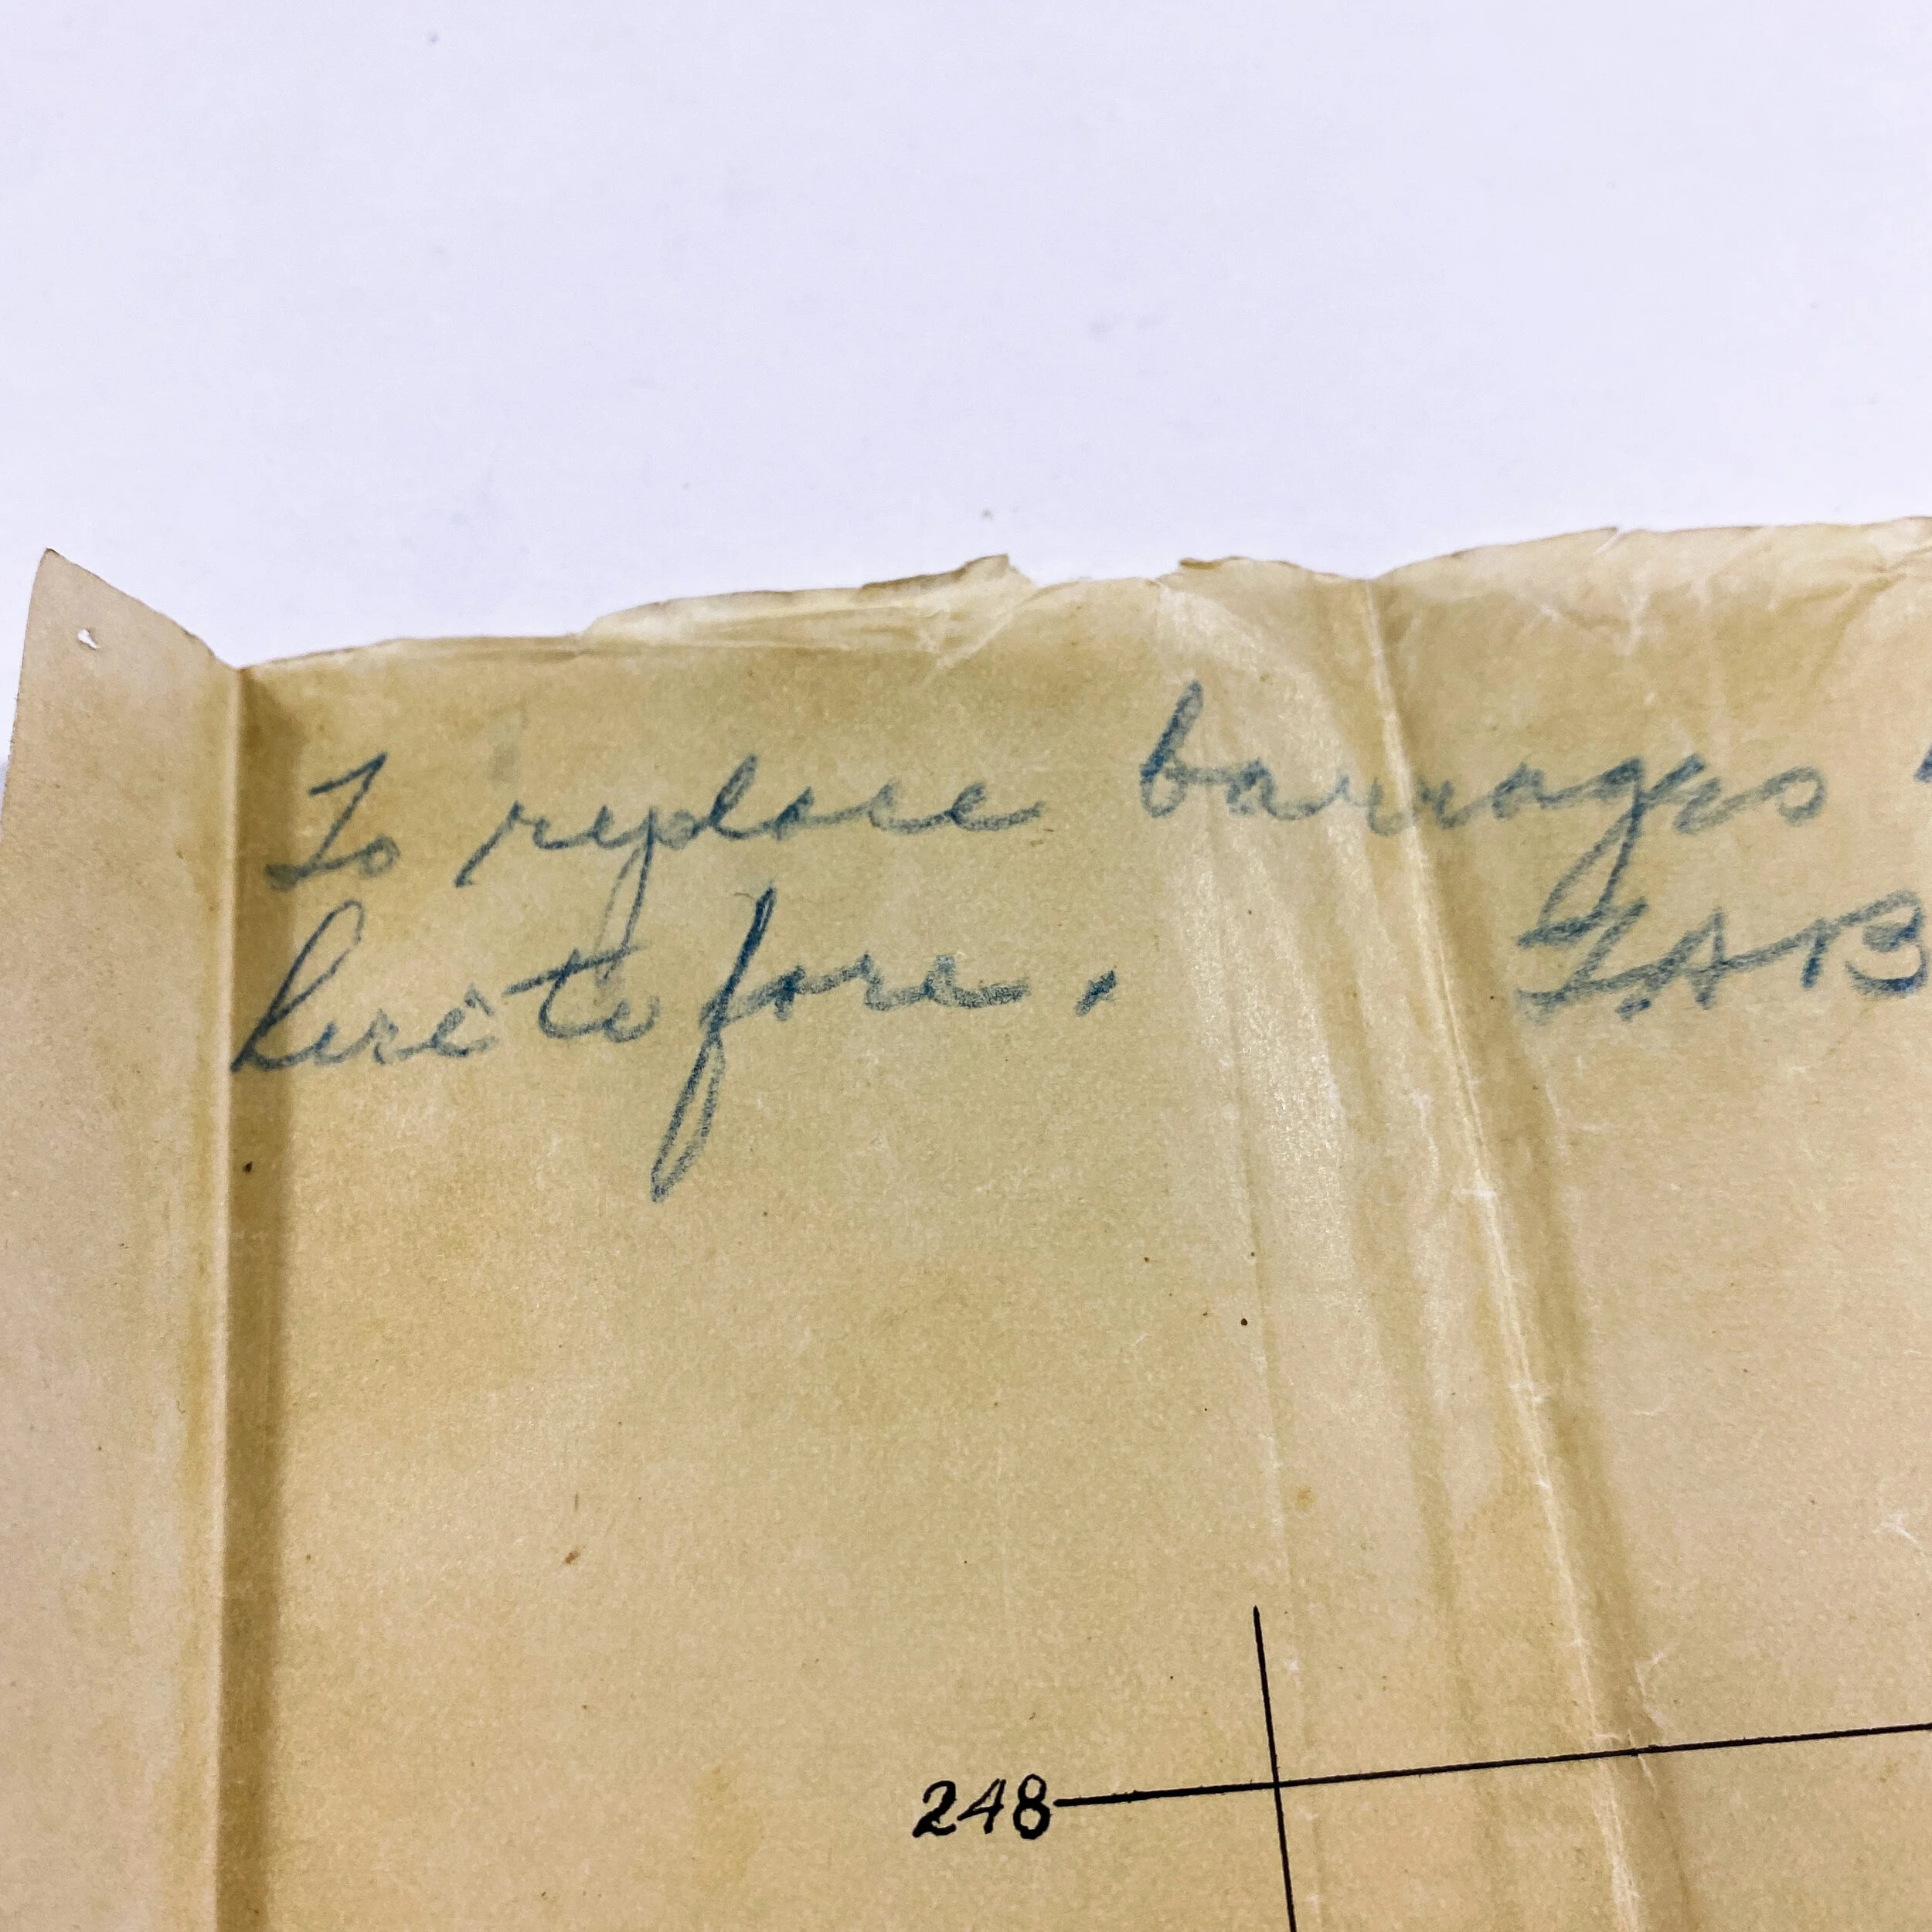 To replace barrages
heretofore. L.A.B
248